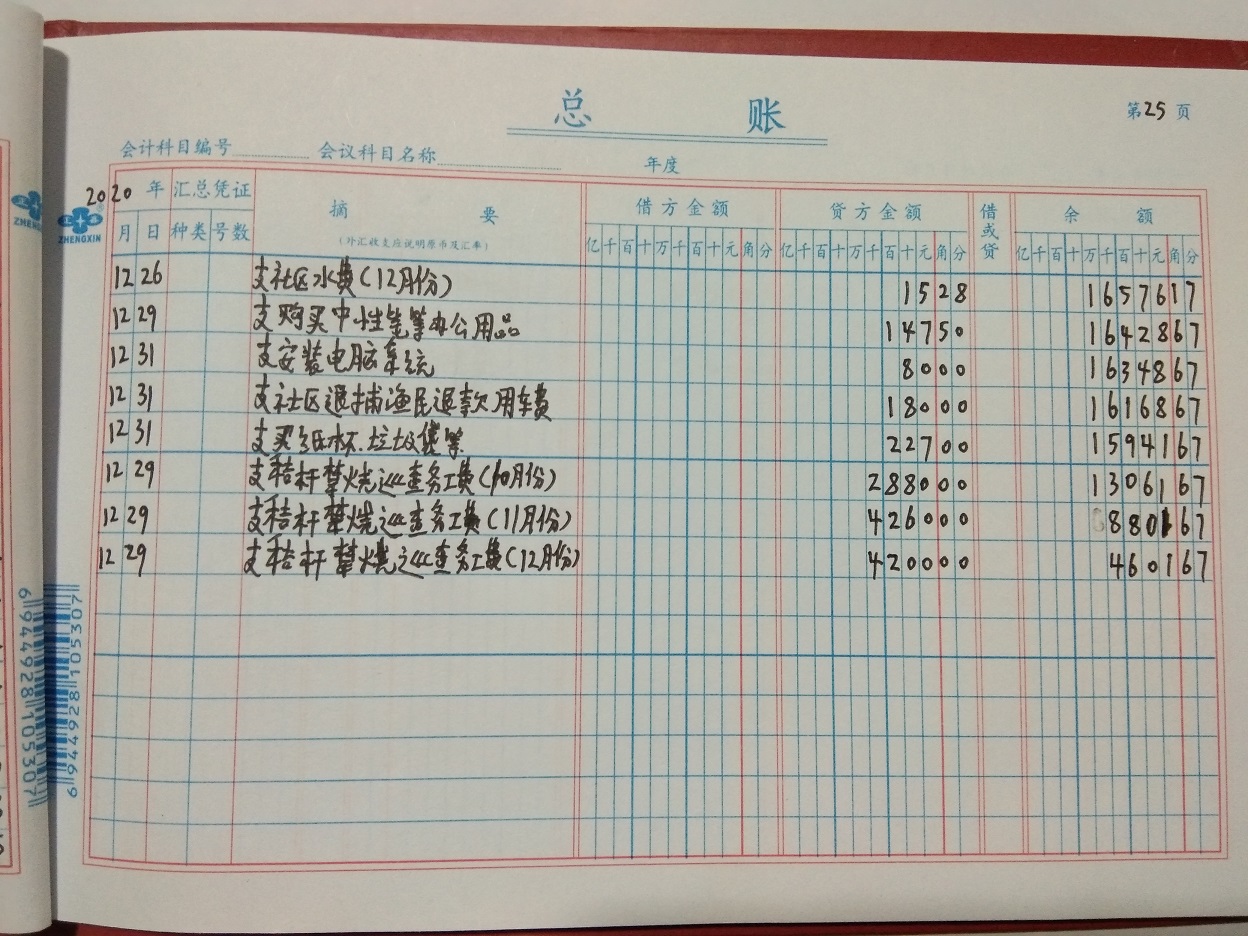 总 账
第25页
会计科目编号 会议科目名称 年度
2020 年 汇总凭证 摘 要 借方金额 贷方金额 借或贷 余 额
(外汇收支应说明原币及汇率)
月 日 种类 号数 亿千百十万千百十元角分 亿千百十万千百十元角分 亿千百十万千百十元角分
ZHENGXIN
12 26 支社区水费(12月份) 1528 1657617
12 29 支购买中性笔等办公用品 14750 1642867
12 31 支安装电脑系统 8000 1634867
12 31 支社区退捕渔民退款用车费 18000 1616867
12 31 支买纸杯.垃圾袋等 22700 1594167
12 29 支秸杆禁烧巡查务工费(10月份) 288000 1306167
12 29 支秸杆禁烧巡查务工费(11月份) 426000 880167
12 29 支秸杆禁烧巡查务工费(12月份) 420000 460167
6944928105307
6944928105307